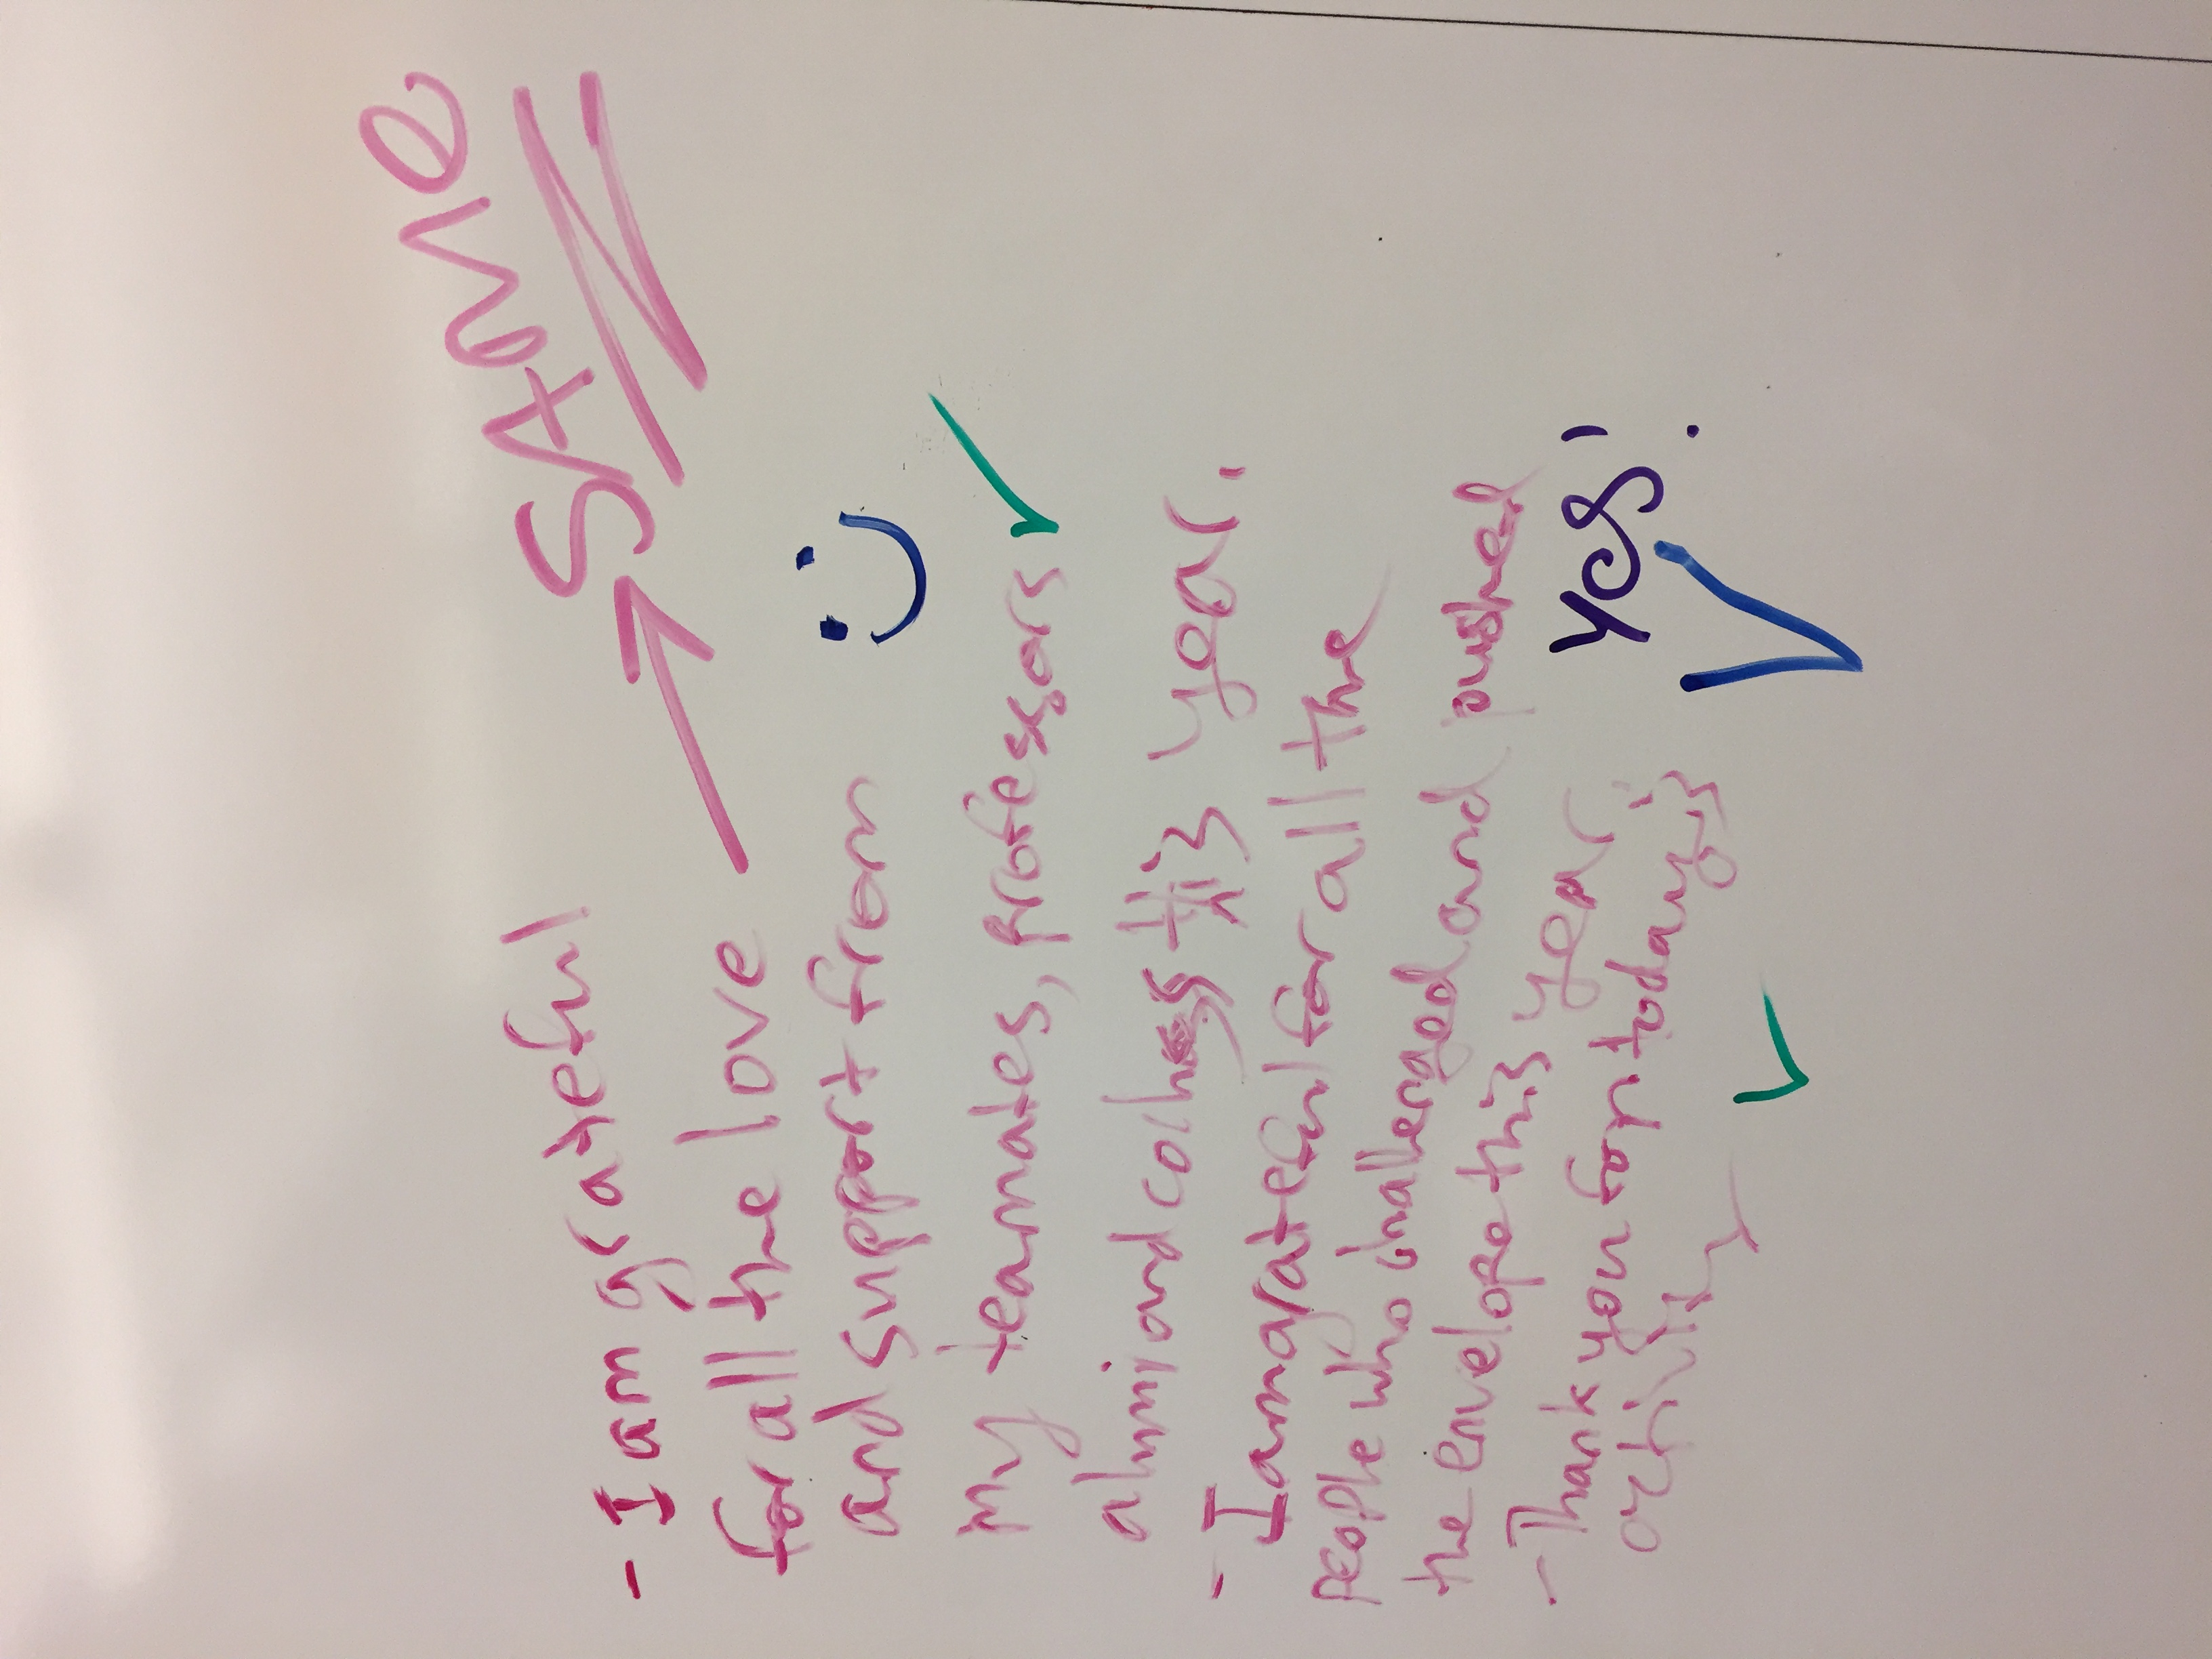 SAME
- I am grateful
for all the love
and support from :)
my teammates, professors
alumni and coches this year.
- I am grateful for all the
people who challenged and pushed
the envelope this year.
yes!
- Thank you for today's
activity